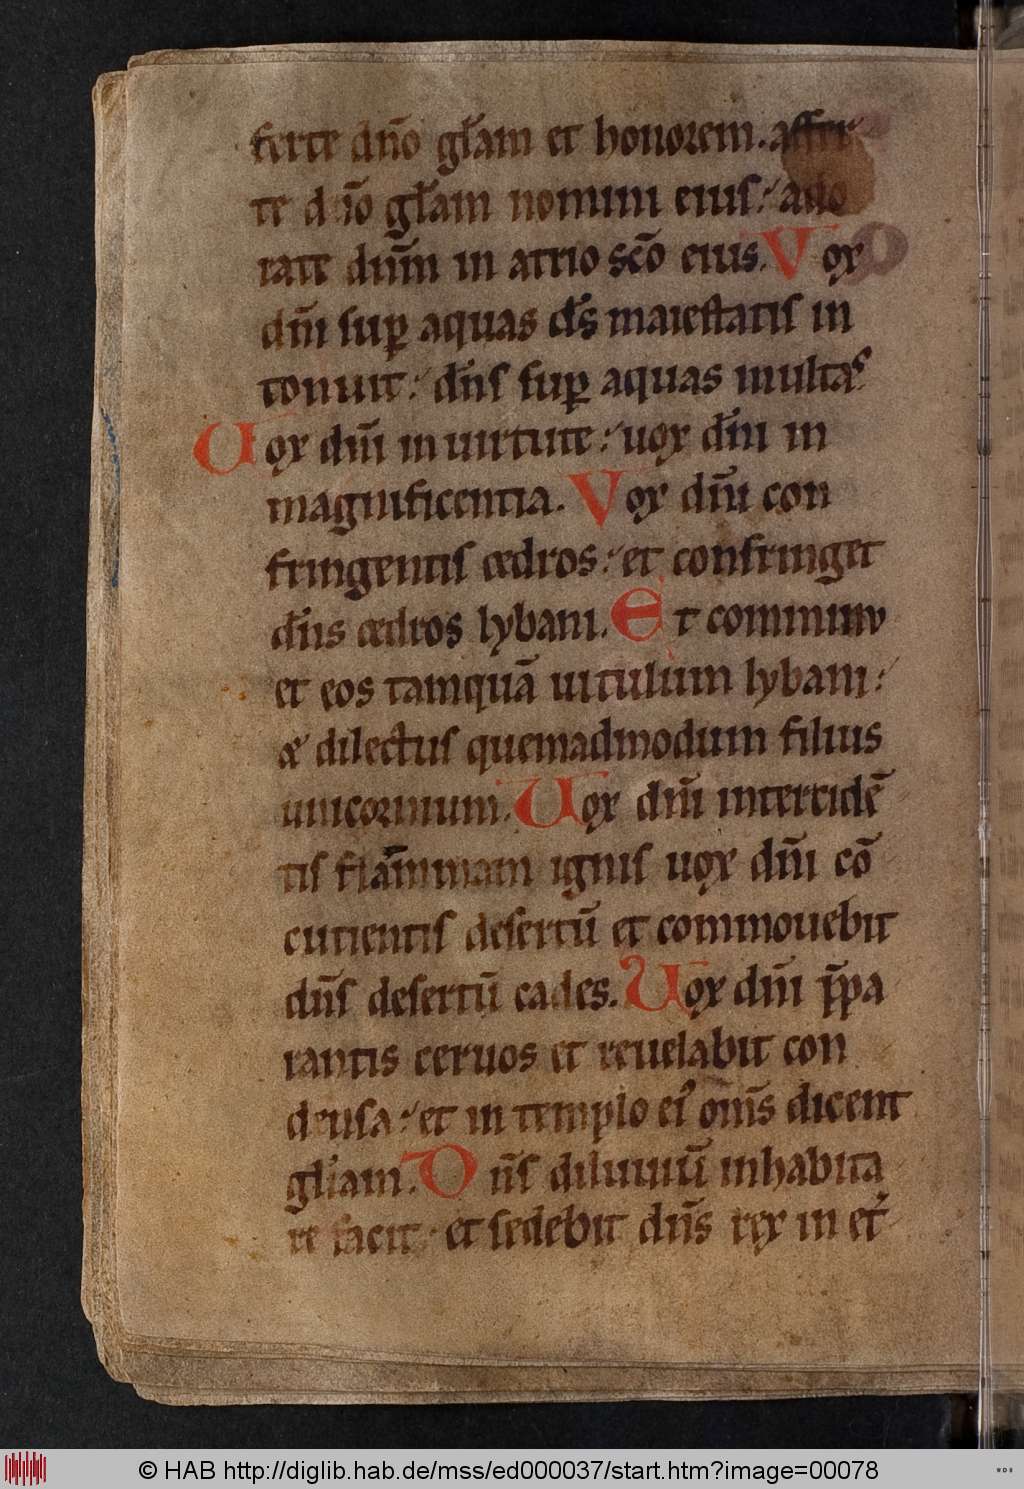 ferte dn̄o gl̄am et honorem. affer
te dn̄o gl̄am nomini eius: ado
rate dnm̄ in atrio sc̄o eius. Vox
dn̄i sup̱ aquas ds̄ maiestatis in
tonuit: dn̄s sup̱ aquas multas
Uox dn̄i in uirtute: uox dn̄i in
magnificentia. Vox dn̄i con
fringentis cedros: et confringet
dn̄s cedros lybani. Et comminu
et eos tamquā uitulum lybani:
& dilectus quemadmodum filius
unicornium. Uox dn̄i intercidē
tis flam̄mam ignis uox dn̄i cō
cutientis desertū et commouebit
dn̄s desertū cades. Uox dn̄i p̄pa
rantis ceruos et reuelabit con
densa: et in templo ei᾽ oms̄ dicent
gl̄iam. Dn̄s diluuiū inhabita
re facit· et sedebit dn̄s rex in et᾽
© HAB http://diglib.hab.de/mss/ed000037/start.htm?image=00078